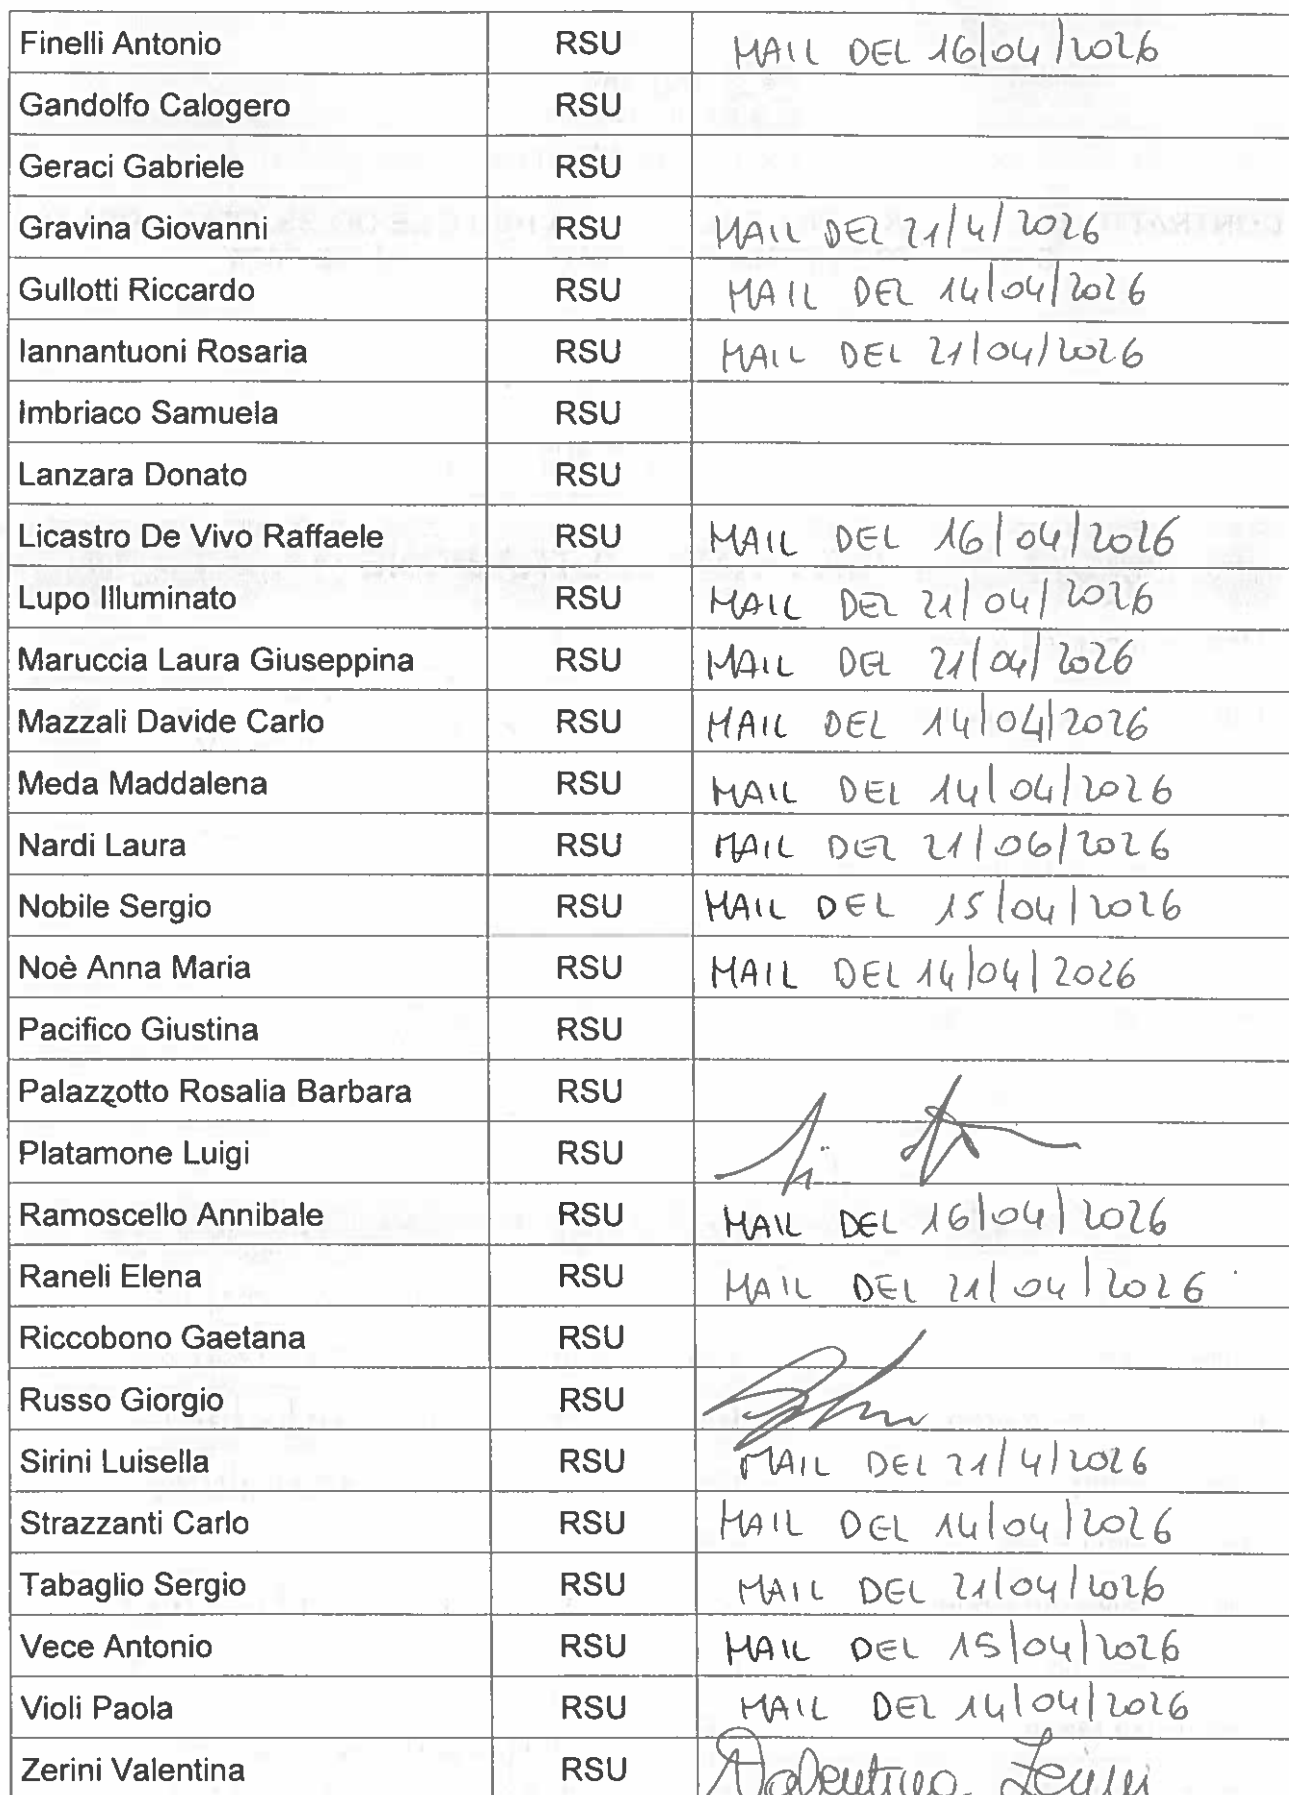 Finelli Antonio RSU MAIL DEL 16/04/2026
Gandolfo Calogero RSU
Geraci Gabriele RSU
Gravina Giovanni RSU MAIL DEL 21/4/2026
Gullotti Riccardo RSU MAIL DEL 14/04/2026
Iannantuoni Rosaria RSU MAIL DEL 21/04/2026
Imbriaco Samuela RSU
Lanzara Donato RSU
Licastro De Vivo Raffaele RSU MAIL DEL 16/04/2026
Lupo Illuminato RSU MAIL DEL 21/04/2026
Maruccia Laura Giuseppina RSU MAIL DEL 21/04/2026
Mazzali Davide Carlo RSU MAIL DEL 14/04/2026
Meda Maddalena RSU MAIL DEL 14/04/2026
Nardi Laura RSU MAIL DEL 21/06/2026
Nobile Sergio RSU MAIL DEL 15/04/2026
Noè Anna Maria RSU MAIL DEL 14/04/2026
Pacifico Giustina RSU
Palazzotto Rosalia Barbara RSU
Platamone Luigi RSU
Ramoscello Annibale RSU MAIL DEL 16/04/2026
Raneli Elena RSU MAIL DEL 21/04/2026
Riccobono Gaetana RSU
Russo Giorgio RSU
Sirini Luisella RSU MAIL DEL 21/4/2026
Strazzanti Carlo RSU MAIL DEL 14/04/2026
Tabaglio Sergio RSU MAIL DEL 21/04/2026
Vece Antonio RSU MAIL DEL 15/04/2026
Violi Paola RSU MAIL DEL 14/04/2026
Zerini Valentina RSU Valentina Zerini